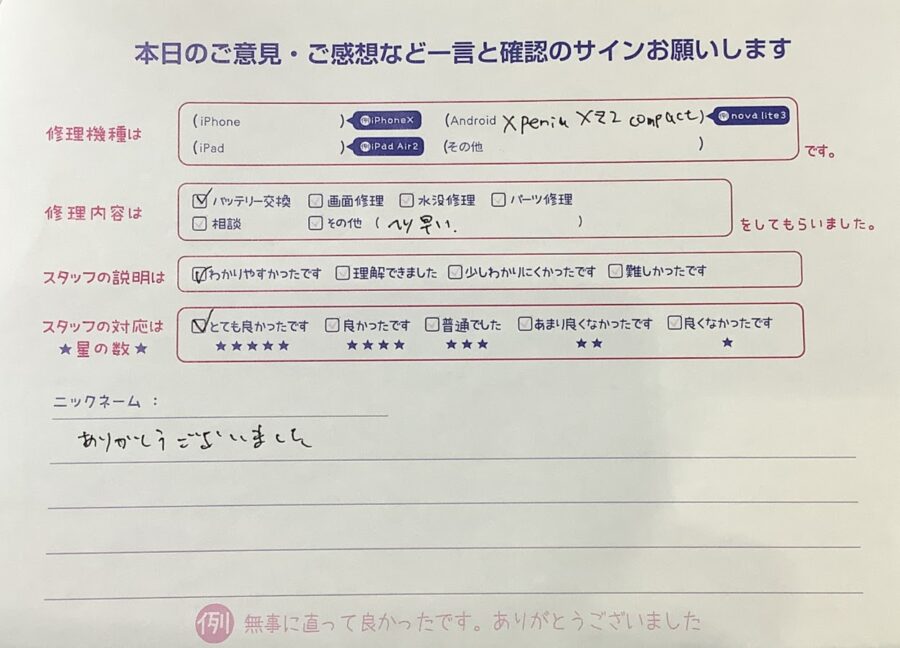 本日のご意見・ご感想など一言と確認のサインお願いします
修理機種は (iPhone )例iPhoneX (Android Xperia XZ2 compact)例nova lite3
(iPad )例iPad Air2 (その他 ) です。
修理内容は バッテリー交換 画面修理 水没修理 パーツ修理
相談 その他 ( 早い. ) をしてもらいました。
スタッフの説明は わかりやすかったです 理解できました 少しわかりにくかったです 難しかったです
スタッフの対応は とても良かったです 良かったです 普通でした あまり良くなかったです 良くなかったです
★星の数★ ★★★★★ ★★★★ ★★★ ★★ ★
ニックネーム：
ありがとうございました
例 無事に直って良かったです。ありがとうございました